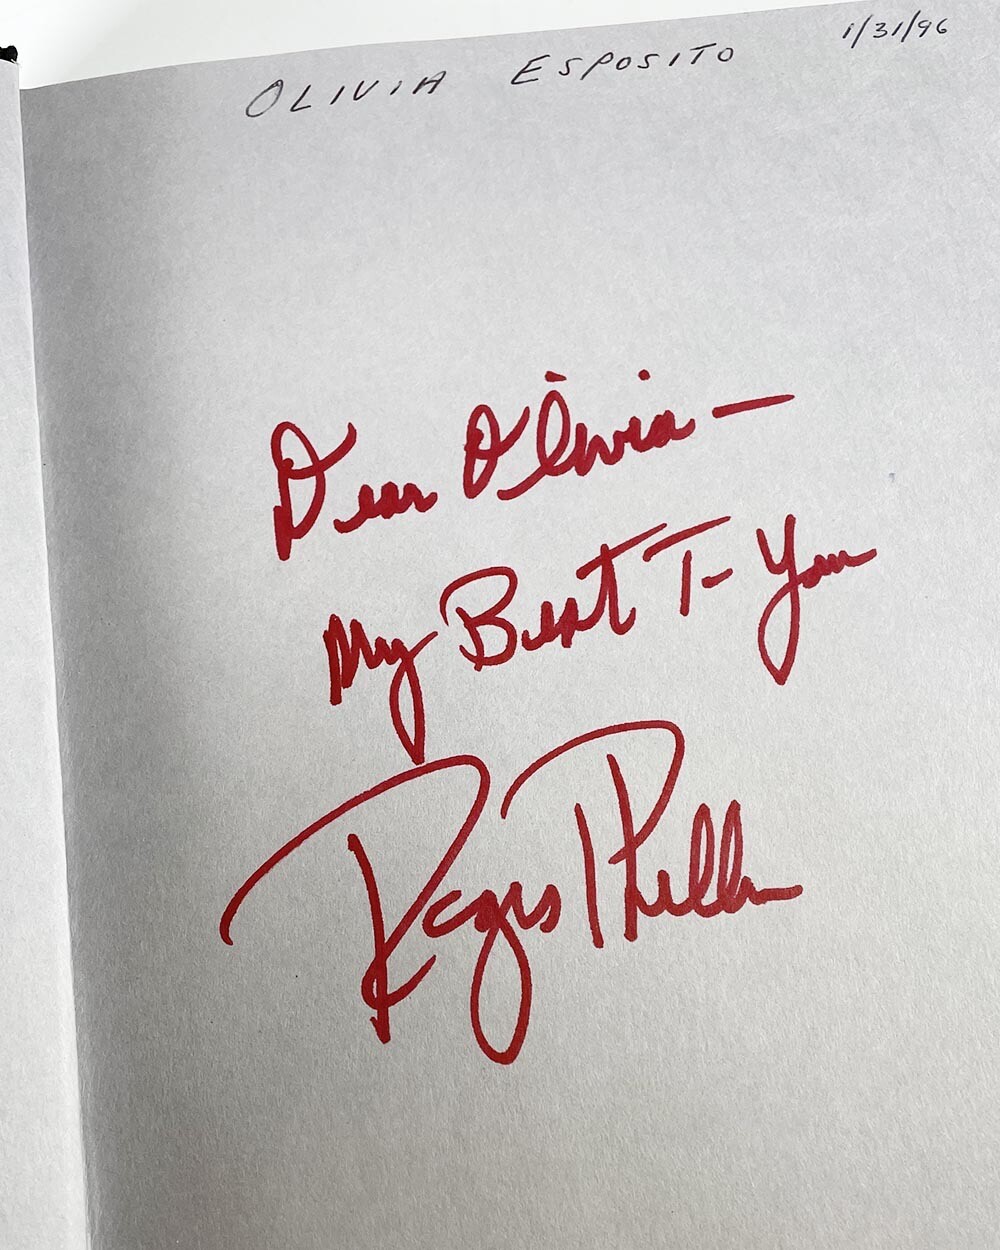 OLIVIA ESPOSITO 1/31/96
Dear Olivia —
My Best To You
Regis Philbin